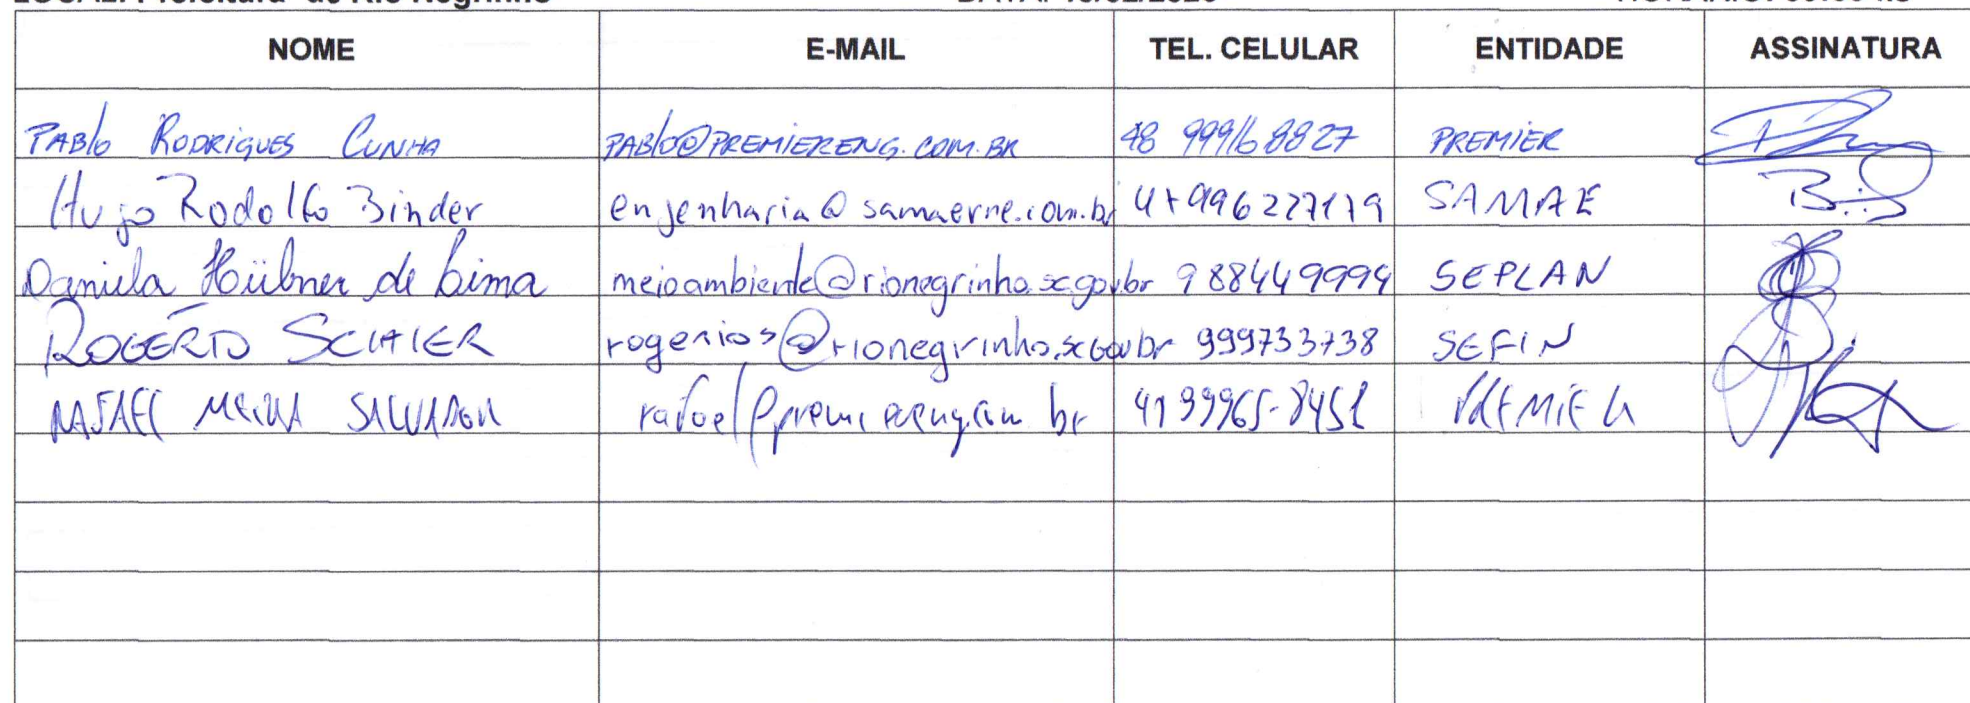 LOCAL: Prefeitura de Rio Negrinho
NOME E-MAIL TEL. CELULAR ENTIDADE ASSINATURA
PABlo RODRIGUES CUNHA PABlo@PREMIERENG.COM.BR 48 999168827 PREMIER
Hugo Rodolfo Binder engenharia@samaerne.com.br SAMAE
Daniela Hübner de Lima meioambiente@rionegrinho.sc.gov.br 988449999 SEPLAN
ROGÉRIO rogerios@rionegrinho.sc.gov.br 999733738 SEFIN
RAFAEL SALVADOR rafael@premiereng.com br PREMIER